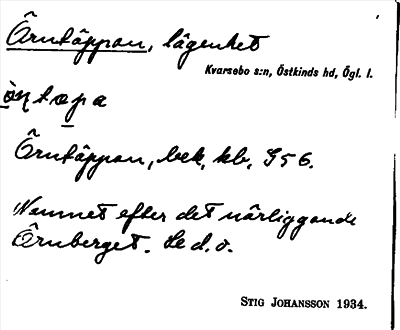 Örntäppan, lägenhet
Kvarsebo s:n, Östkinds hd, Ögl. l.
Örntäppan, bek, kb, G56.
Namnet efter det närliggande
Örnberget. Se d. o.
STIG JOHANSSON 1934.